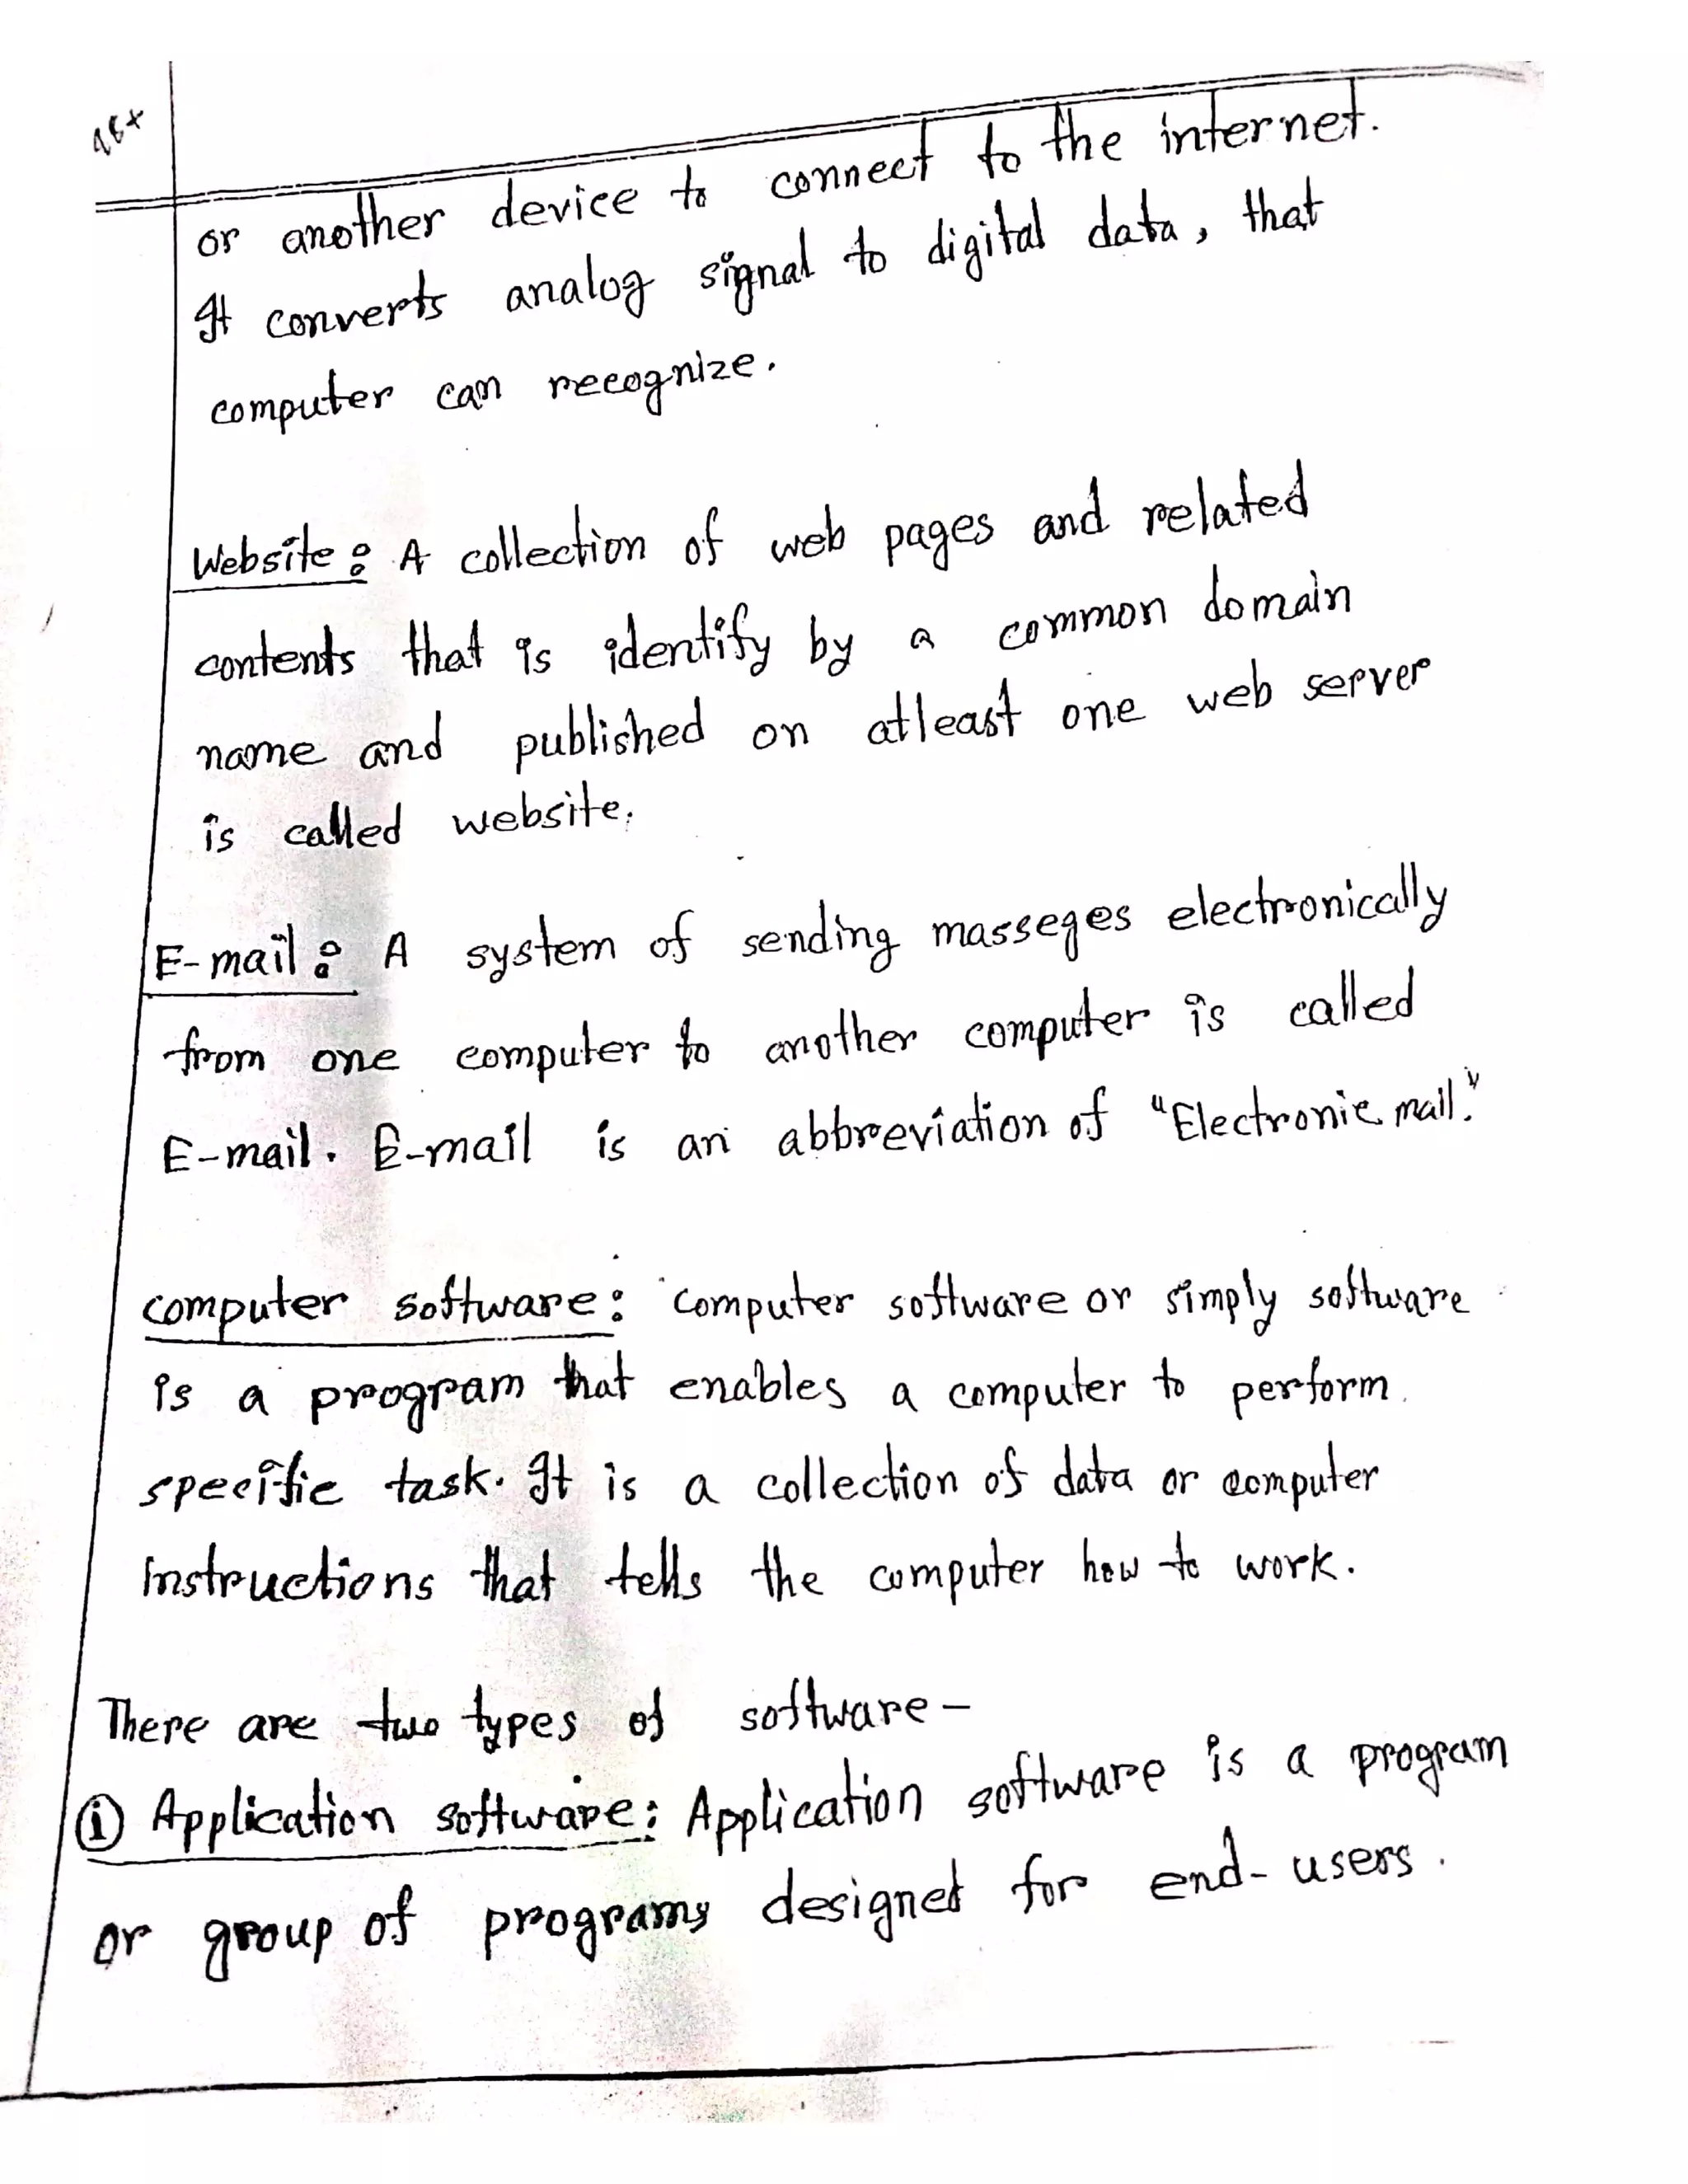 or another device to connect to the internet.
It converts analog signal to digital data, that
computer can recognize.
Website: A collection of web pages and related
contents that is identify by a common domain
name and published on atleast one web server
is called website.
E-mail: A system of sending masseges electronically
from one computer to another computer is called
E-mail. E-mail is an abbreviation of "Electronic mail."
computer software: computer software or simply software
is a program that enables a computer to perform
specific task. It is a collection of data or computer
instructions that tells the computer how to work.
There are two types of software-
(i) Application software: Application software is a program
or group of programs designed for end-users.